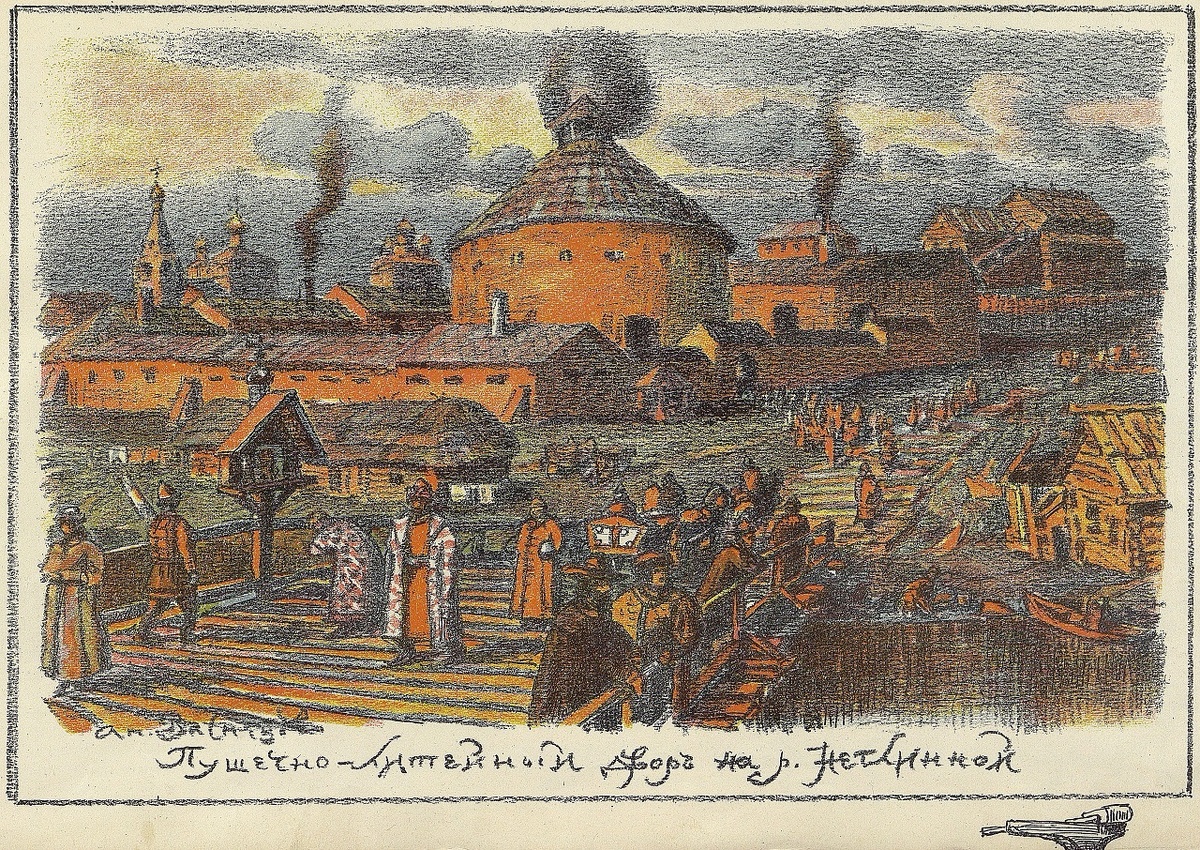 Ап. Васнецов
Пушечно-Литейный дворъ на р. Неглинной